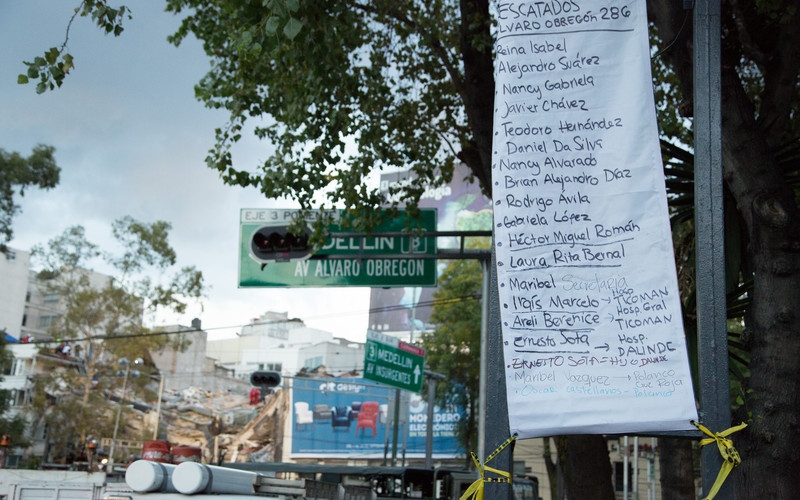 ESCATADOS
LVARO OBREGÓN 286
Reina Isabel
Alejandro Suárez
Nancy Gabriela
Javier Chávez
Teodoro Hernández
Daniel Da Silva
Nancy Alvarado
Brian Alejandro Díaz
Rodrigo Ávila
Gabriela López
Héctor Miguel Román
Laura Rita Bernal
Maribel Secretaria
Irais Marcelo → Hosp. TICOMAN
Areli Berenice → Hosp. Gral TICOMAN
Ernesto Sota → Hosp. DALINDE
ERNESTO SOTA = DALINDE
Maribel Vazquez → Polanco Cruz Roja
Castellanos - Polanco
EJE 3 PONIENTE
DELLIN
AV ALVARO OBREGON
MEDELLIN
AV INSURGENTES